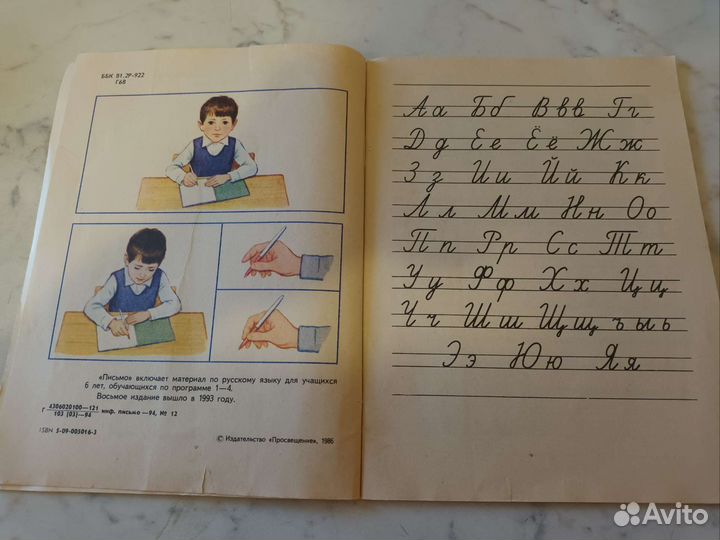 ББК 81.2Р-922
Г68
«Письмо» включает материал по русскому языку для учащихся
6 лет, обучающихся по программе 1—4.
Восьмое издание вышло в 1993 году.
Г 4306020100—121
103 (03)—94 инф. письмо—94, № 12
ISBN 5-09-005016-3
© Издательство «Просвещение», 1986
Аа Бб Ввв Гг
Дд Ее Ёё Жж
Зз Ии Йй Кк
Лл Мм Нн Оо
Пп Рр Сс Тт
Уу Фф Хх Цц
Чч Шш Щщ ъыь
Ээ Юю Яя
Avito